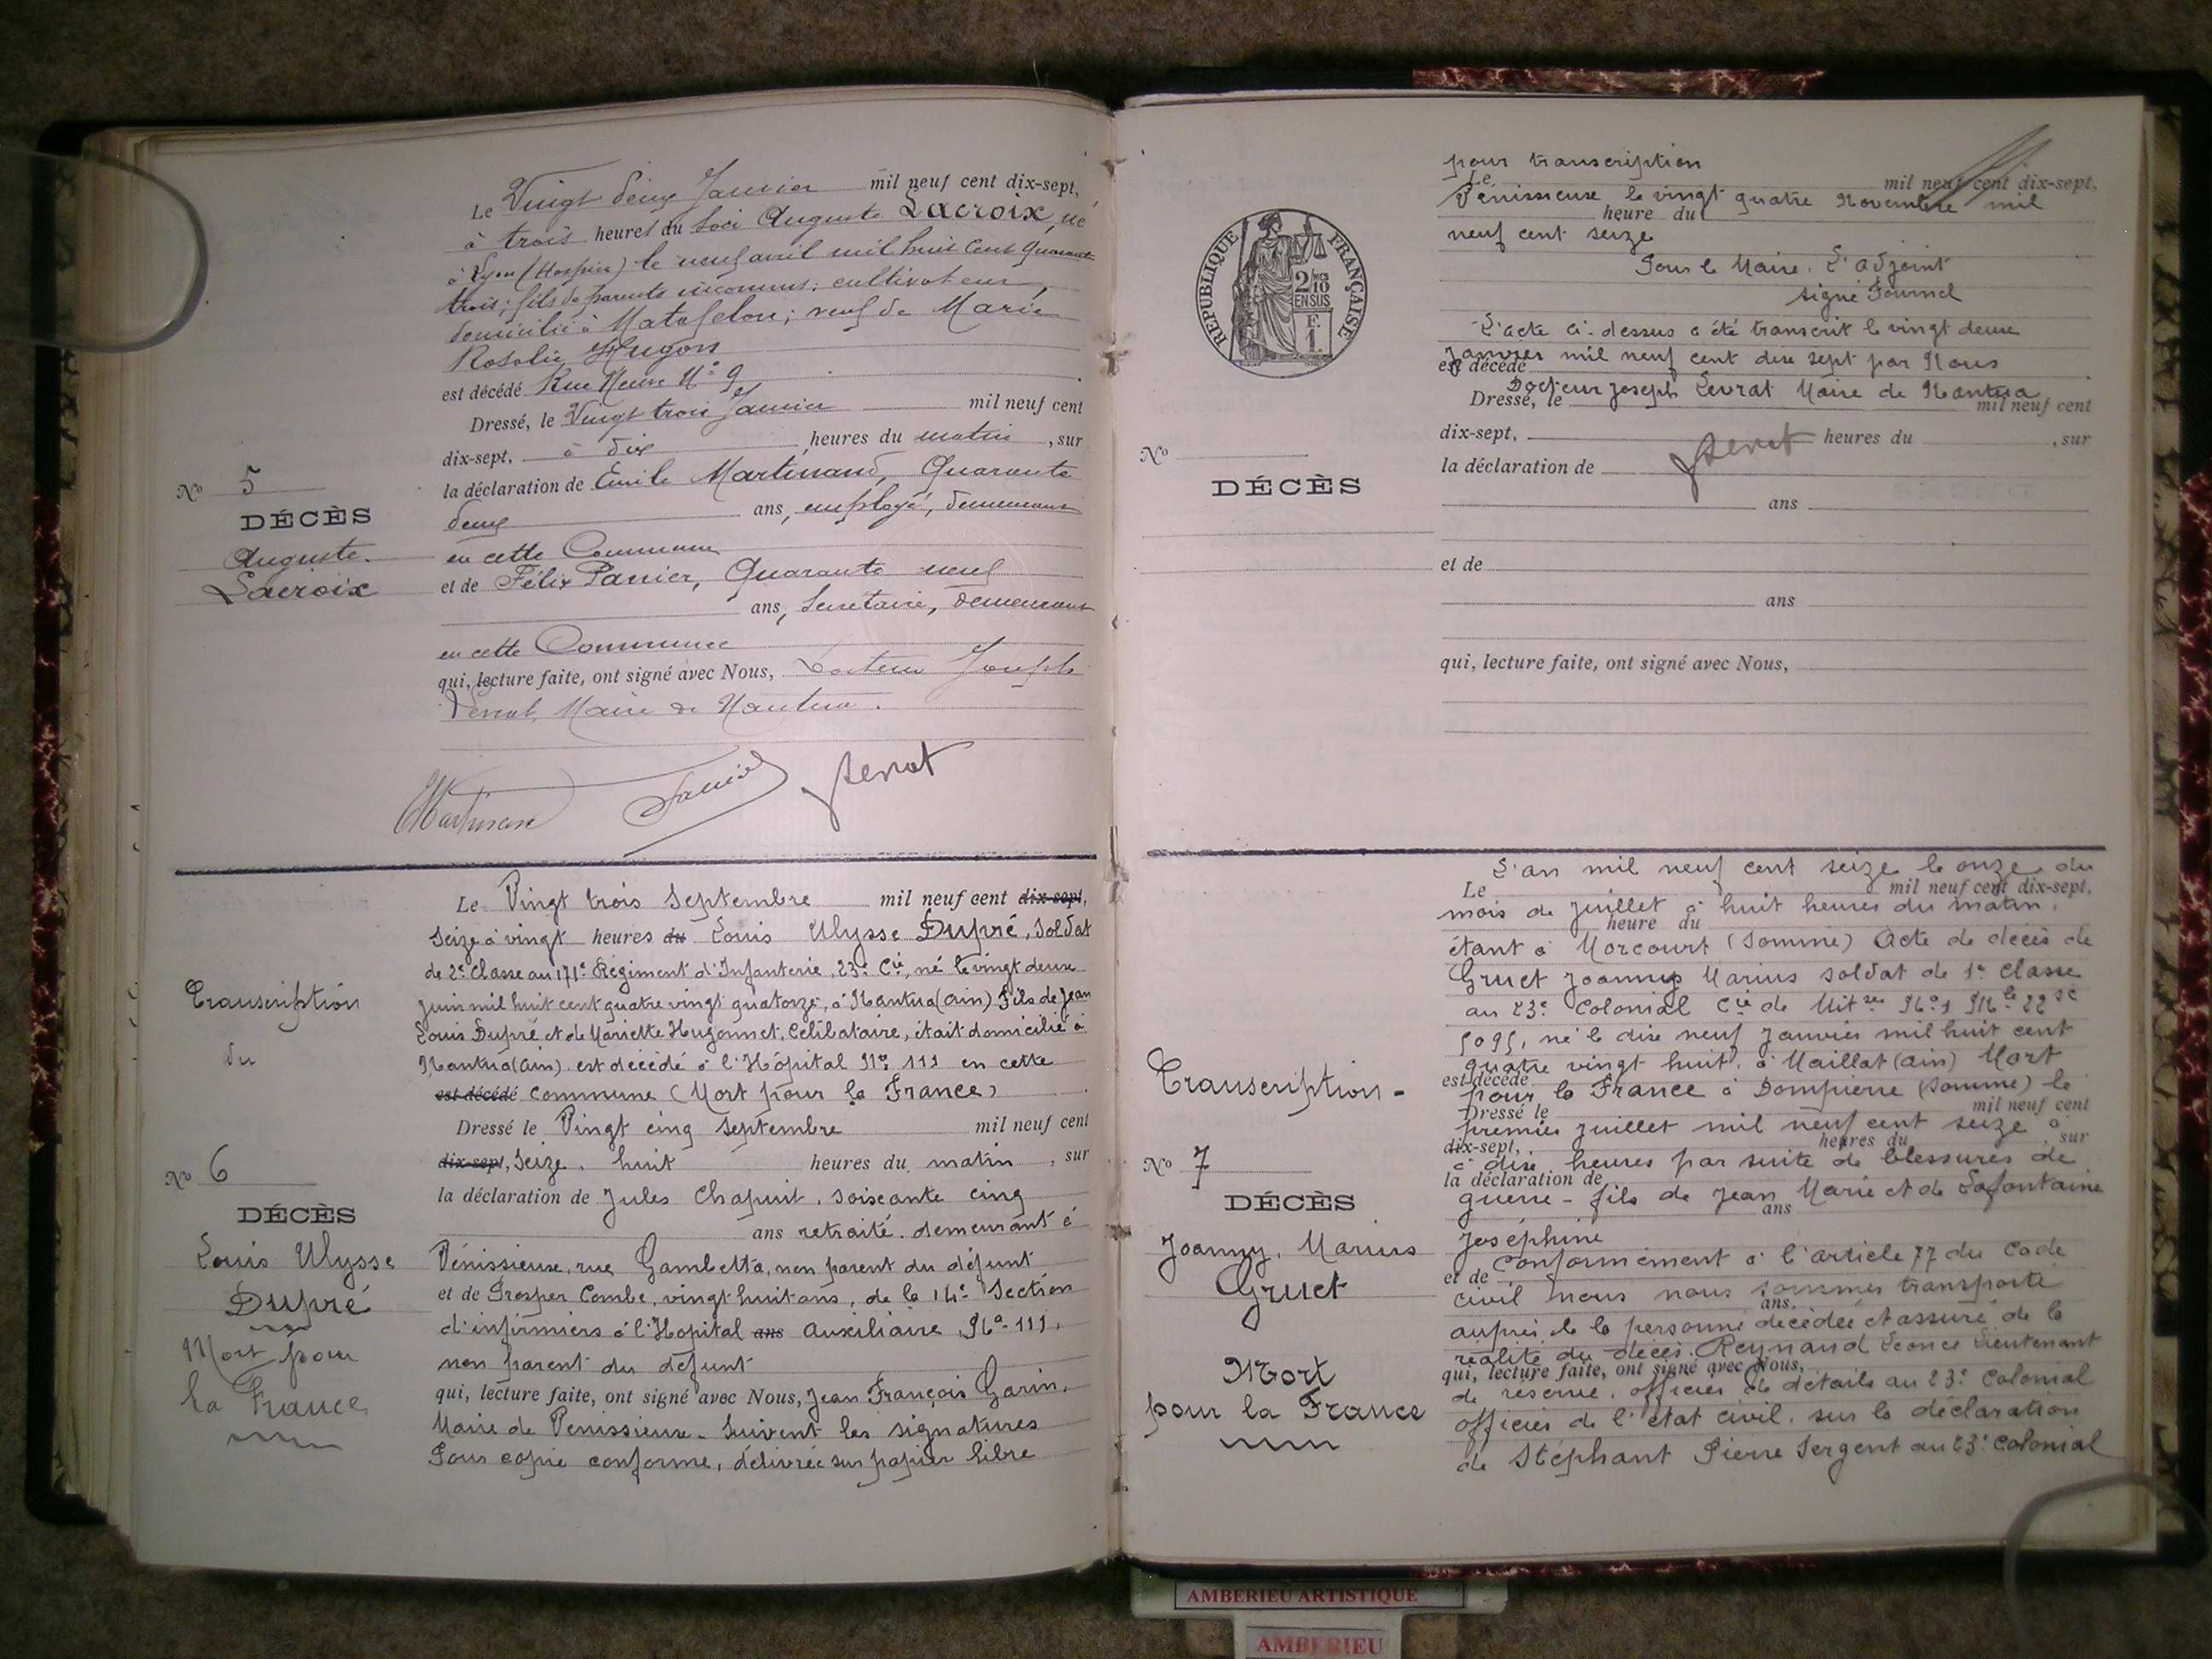 Le Vingt deux Janvier mil neuf cent dix-sept,
à trois heures du soir Auguste Lacroix, né
à Lyon (Hospice) le neuf avril mil huit cent quarante
trois; fils de parents inconnus; cultivateur,
domicilié à Matafelon; veuf de Marie
Rosalie Hugon
est décédé Rue Neuve N° 9
Dressé, le Vingt trois Janvier mil neuf cent
dix-sept, à dix heures du matin, sur
la déclaration de Emile Martinand, Quarante
deux ans, employé, demeurant
en cette Commune
et de Félix Panier, Quarante neuf
ans, Secrétaire, demeurant
en cette Commune
qui, lecture faite, ont signé avec Nous, Docteur Joseph
Levrat, Maire de Nantua.
N° 5
DÉCÈS
Auguste
Lacroix
Transcription
du
N° 6
DÉCÈS
Louis Ulysse
Dupré
Mort pour
la France
Le Vingt trois Septembre mil neuf cent dix-sept,
Seize à vingt heures du Louis Ulysse Dupré, Soldat
de 2e Classe au 171e Régiment d'Infanterie, 23e Cie, né le vingt deux
Juin mil huit cent quatre vingt quatorze, à Nantua (Ain) Fils de Jean
Louis Dupré et de Mariette Hugonnet, Célibataire, était domicilié à
Nantua (Ain) est décédé à l'Hôpital N° 111 en cette
est décédé commune (Mort pour la France)
Dressé le Vingt cinq Septembre mil neuf cent
dix-sept, Seize, huit heures du matin, sur
la déclaration de Jules Chapuit, soixante cinq
ans retraité, demeurant à
Vénissieux, rue Gambetta, non parent du défunt
et de Prosper Combe, vingt huit ans, de la 14e Section
d'infirmiers à l'Hopital ans Auxiliaire, N° 111,
non parent du défunt
qui, lecture faite, ont signé avec Nous, Jean François Garin,
Maire de Venissieux. Suivent les signatures
Pour copie conforme, délivrée sur papier libre
pour transcription
Le mil neuf cent dix-sept,
Vénissieux le vingt quatre Novembre mil
heure du
neuf cent seize
Pour le Maire, L'adjoint
signé Fournel
L'acte ci-dessus a été transcrit le vingt deux
Janvier mil neuf cent dix sept par Nous
est décédé
Docteur Joseph Levrat Maire de Nantua
Dressé, le mil neuf cent
dix-sept, heures du , sur
la déclaration de
ans
et de
ans
qui, lecture faite, ont signé avec Nous,
REPUBLIQUE FRANÇAISE
2/10
EN SUS
F.
1.
N°
DÉCÈS
Transcription -
N° 7
DÉCÈS
Joanny, Marius
Gruet
Mort
pour la France
L'an mil neuf cent seize le onze du
Le mil neuf cent dix-sept,
mois de Juillet à huit heures du matin,
heure du
étant à Morcourt (Somme) Acte de décès de
Gruet Joanny Marius soldat de 1e Classe
au 23e Colonial Cie de Mitres N° 1
5095, né le dix neuf Janvier mil huit cent
quatre vingt huit, à Maillat (Ain) Mort
est décédé
pour la France à Dompierre (Somme) le
Dressé le mil neuf cent
premier juillet mil neuf cent seize à
dix-sept, heures du , sur
à dix heures par suite de blessures de
la déclaration de
guerre - fils de Jean Marie et de Lafontaine
ans
Joséphine
Conformément à l'article 77 du Code
et de
civil nous nous sommes transporté
ans,
auprès de la personne décédée et assuré de la
réalité du décès. Reynaud Léonce Lieutenant
qui, lecture faite, ont signé avec Nous,
de réserve, officier de détails au 23e Colonial
officier de l'état civil, sur la déclaration
de Stéphant Pierre Sergent au 23e Colonial
AMBERIEU ARTISTIQUE
AMBERIEU